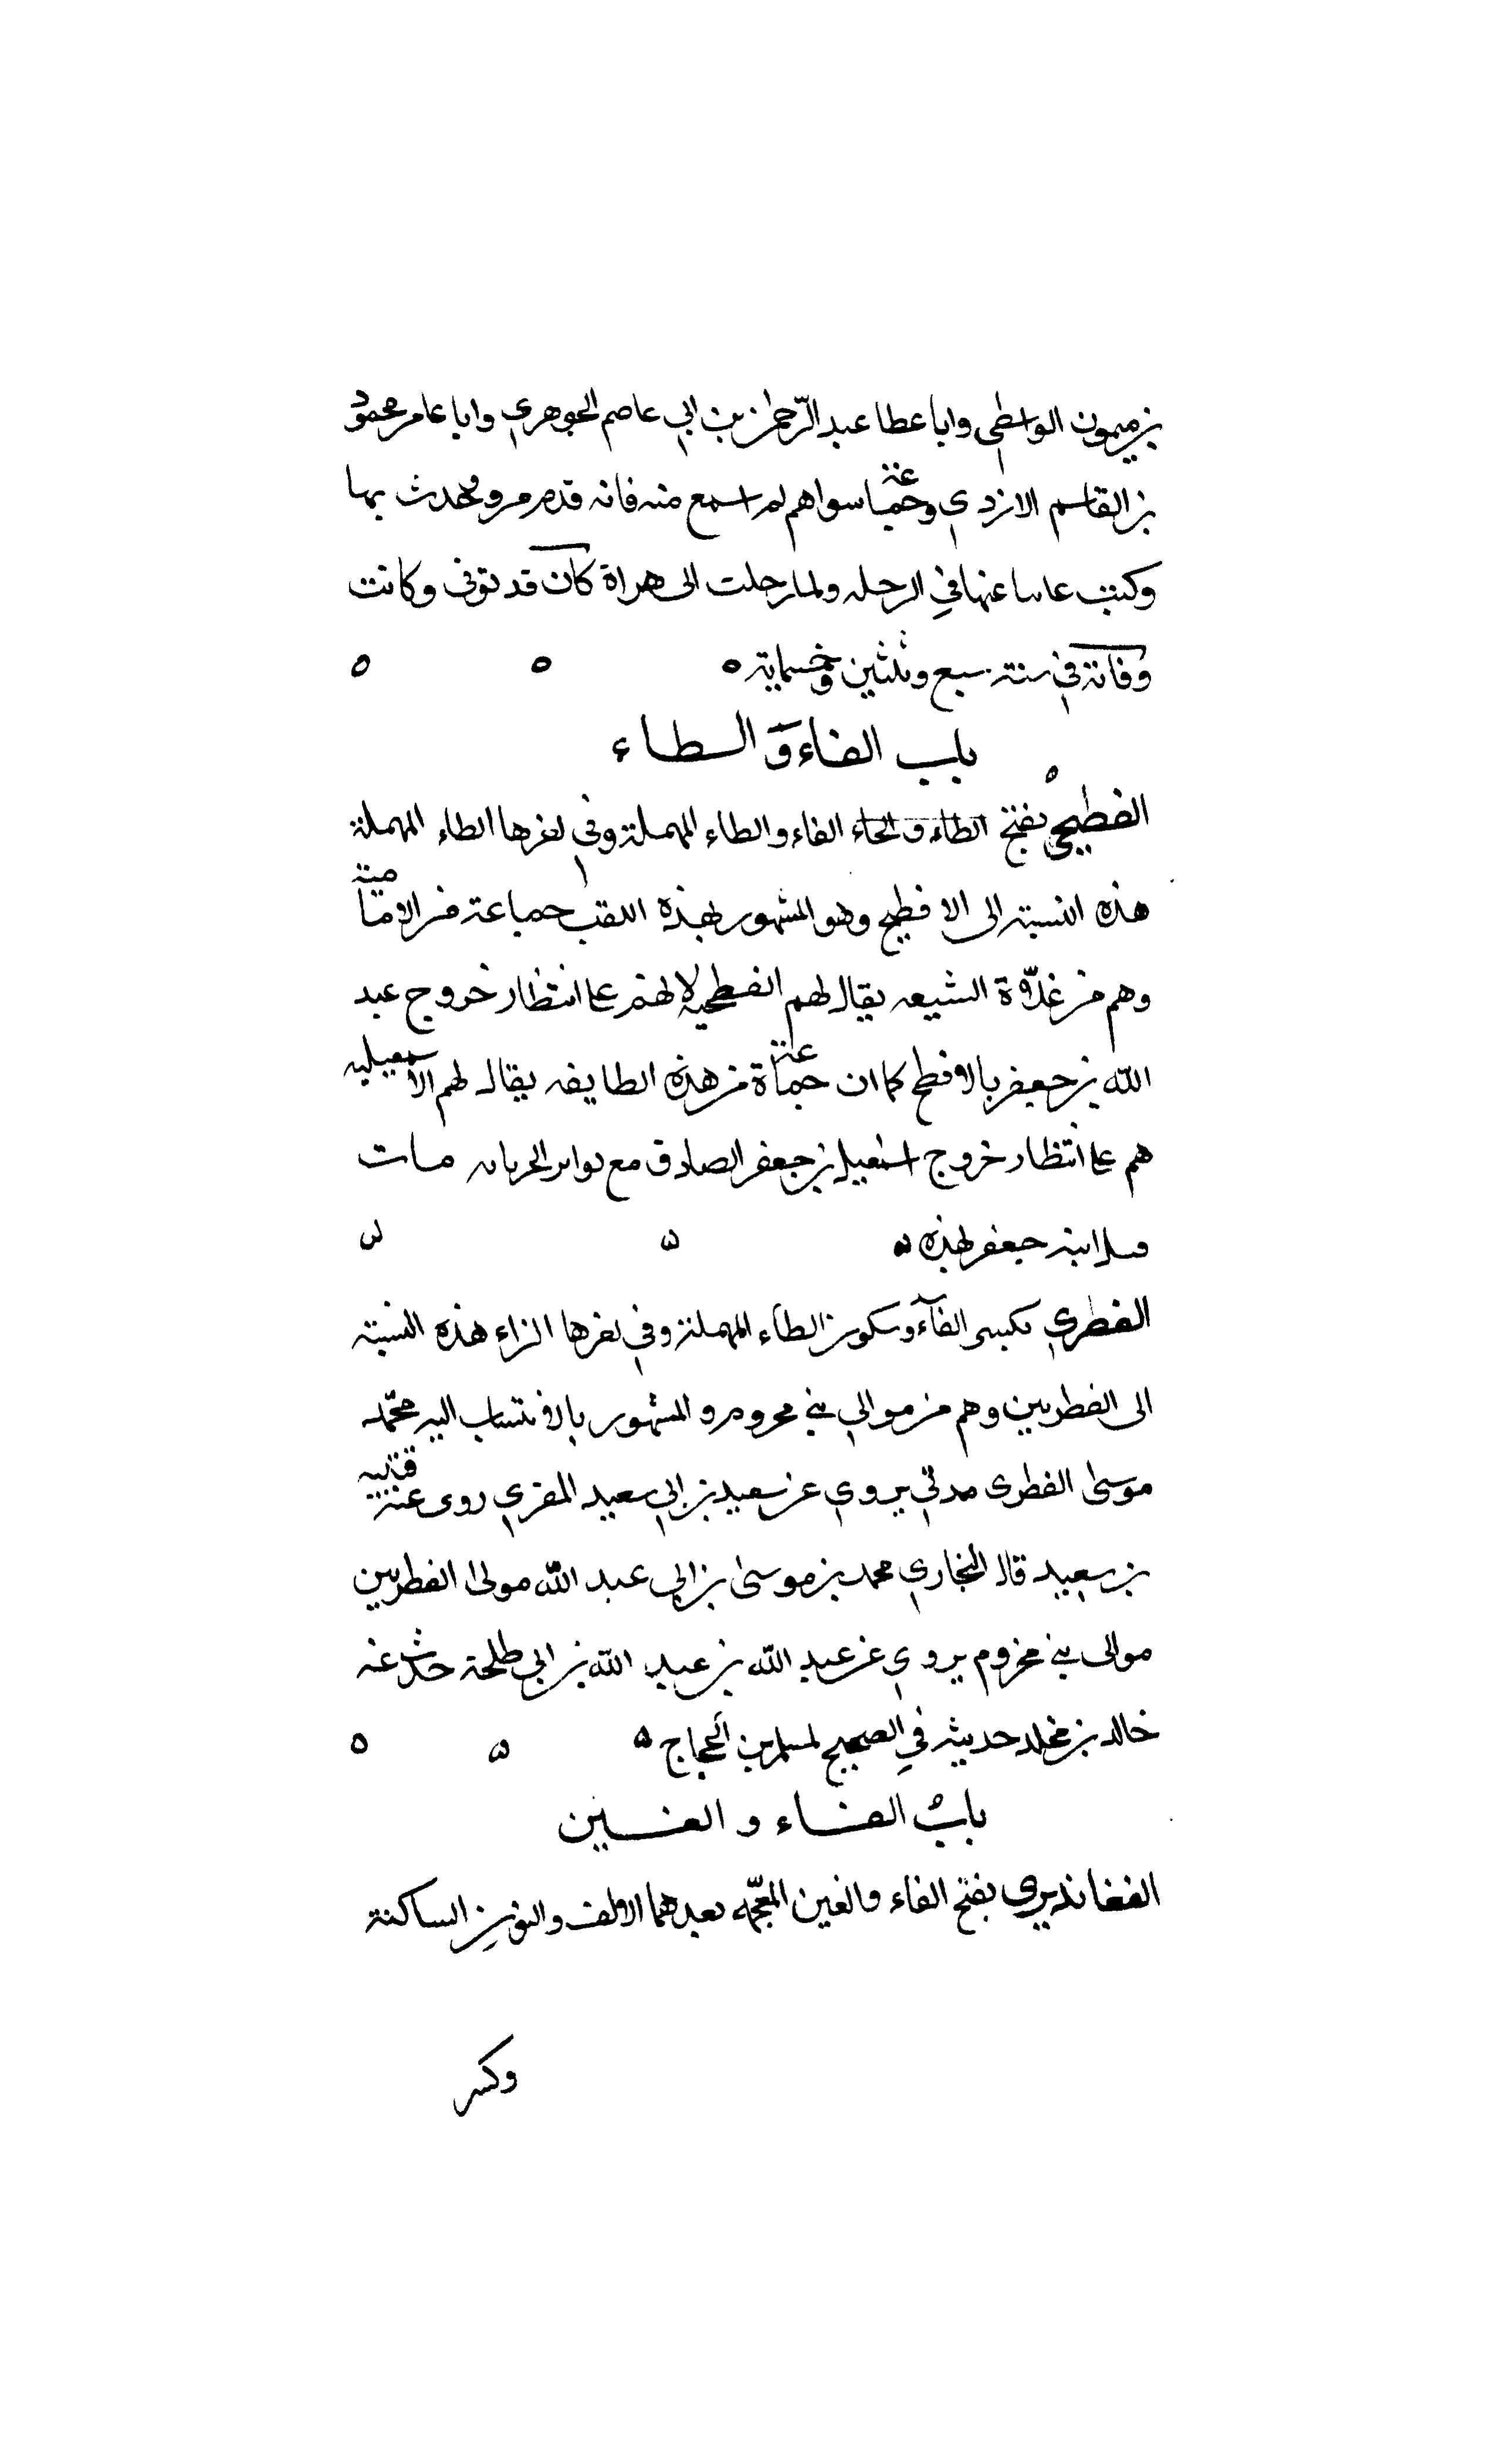 بن ميمون الواسطي وابا عطا عبد الرحمن بن ابي عاصم الجوهري وابا عامر محمود
بن القاسم الازدي وجماعة سواهم لم اسمع منه فانه قدم مرو وحدث بها
وكنت غايبا عنها في الرحله ولما رحلت الى هراة كان قد توفى وكانت
وفاته في سنة سبع وثلثين وخسماية ه ه ه
باب الفاء والطاء
الفطحي بفتح الطاء والحاء الفاء والطاء المهملة وفي اخرها الطاء المهملة
هذه النسبة الى الافطح وهو المشهور بهذه اللقب جماعة من الامامية
وهم من غلاة الشيعه يقال لهم الفطحيه لانهم على انتظار خروج عبد
الله بن جعفر بالافطح كما ان جماعة من هذه الطايفه يقال لهم الاسمعيليه
هم على انتظار خروج اسمعيل بن جعفر الصادق مع تواتر مات
ابنه جعفر بهذه ه ه ه
الفطري بكسر الفاء وسكون الطاء المهملة وفي اخرها الراء هذه النسبة
الى الفطريين وهم من موالي بني مخزوم والمشهور بالانتساب اليه محمد
موسى الفطرى مدني يروي عن سعيد بن ابي سعيد المقري روى عنه قتيبه
بن سعيد قال البخاري محمد بن موسى بن ابي عبد الله مولى الفطريين
موالى بني مخزوم يروي عن عبد الله بن عبد الله بن ابي طلحة حدث عنه
خالد بن مخلد حديثه في الصحيح لمسلم بن الحجاج ه ه ه
باب الفاء والغين
الفغانديزي بفتح الفاء والغين المعجمه بعدهما الالف والنون الساكنة
وكسر